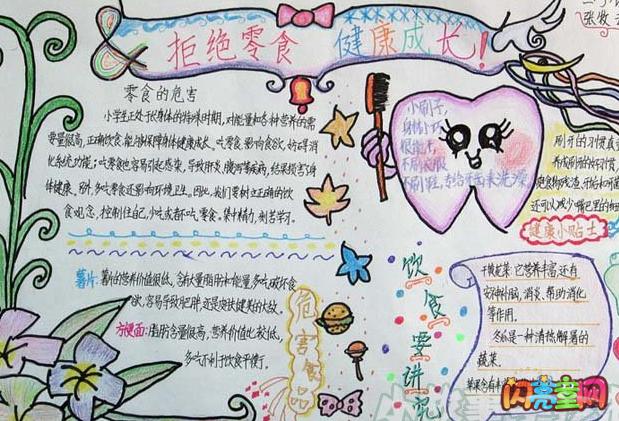 拒绝零食 健康成长!
零食的危害
小学生正处于长身体的特殊时期,对能量和各种营养的需
要量很高,正确饮食,能够保障身体健康成长。吃零食,影响食欲,妨碍消
化系统功能;吃零食也容易引起感染,导致肝炎、腹泻等疾病,结果损害了身
体健康。另外,多吃零食还影响环境卫生。因此,我们要树立正确的饮
食观念,控制住自己,少吃或都不吃零食,集中精力,刻苦学习。
薯片:薯片的营养价值很低,含有大量脂肪和能量,多吃破坏食
欲,容易导致肥胖,还是皮肤健美的大敌。
方便面:脂肪含量很高,营养价值比较低,
多吃不利于饮食平衡了。
危害食品
小刷子,
身体小巧
很能干,
不刷衣服
不刷鞋,专给牙齿来洗澡。
健康小贴士
饮食要讲究
它营养丰富,还有
安神补脑,消炎、帮助消化
等作用。
冬瓜是一种清热解暑的
蔬菜。
苹果含有
闪亮童网